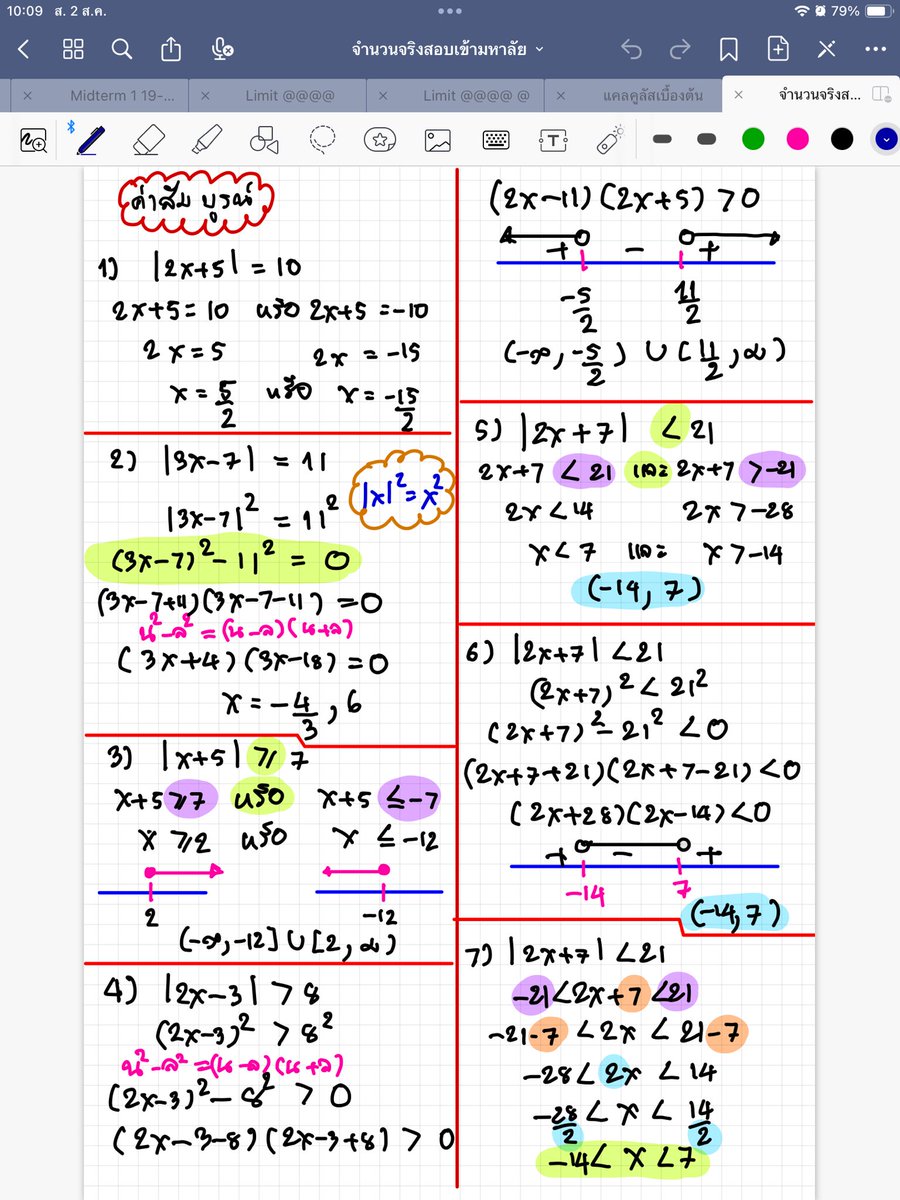 10:09 ส. 2 ส.ค.
79%
จำนวนจริงสอบเข้ามหาลัย
Midterm 1 19-...
Limit @@@@
Limit @@@@ @
แคลคูลัสเบื้องต้น
จำนวนจริงส...
ค่าสัมบูรณ์
1) |2x+5| = 10
2x+5 = 10 หรือ 2x+5 = -10
2x = 5 2x = -15
x = 5/2 หรือ x = -15/2
2) |3x-7| = 11
|x|² = x²
|3x-7|² = 11²
(3x-7)² - 11² = 0
(3x-7+4)(3x-7-11) = 0
น²-ล² = (น-ล)(น+ล)
(3x+4)(3x-18) = 0
x = -4/3, 6
3) |x+5| ≥ 7
x+5 ≥ 7 หรือ x+5 ≤ -7
x ≥ 2 หรือ x ≤ -12
2 -12
(-∞, -12] ∪ [2, ∞)
4) |2x-3| > 8
(2x-3)² > 8²
น²-ล² = (น-ล)(น+ล)
(2x-3)² - 8² > 0
(2x-3-8)(2x-3+8) > 0
(2x-11)(2x+5) > 0
+ - +
-5/2 11/2
(-∞, -5/2) ∪ (11/2, ∞)
5) |2x+7| < 21
2x+7 < 21 และ 2x+7 > -21
2x < 14 2x > -28
x < 7 และ x > -14
(-14, 7)
6) |2x+7| < 21
(2x+7)² < 21²
(2x+7)² - 21² < 0
(2x+7+21)(2x+7-21) < 0
(2x+28)(2x-14) < 0
+ - +
-14 7
(-14, 7)
7) |2x+7| < 21
-21 < 2x+7 < 21
-21-7 < 2x < 21-7
-28 < 2x < 14
-28/2 < x < 14/2
-14 < x < 7